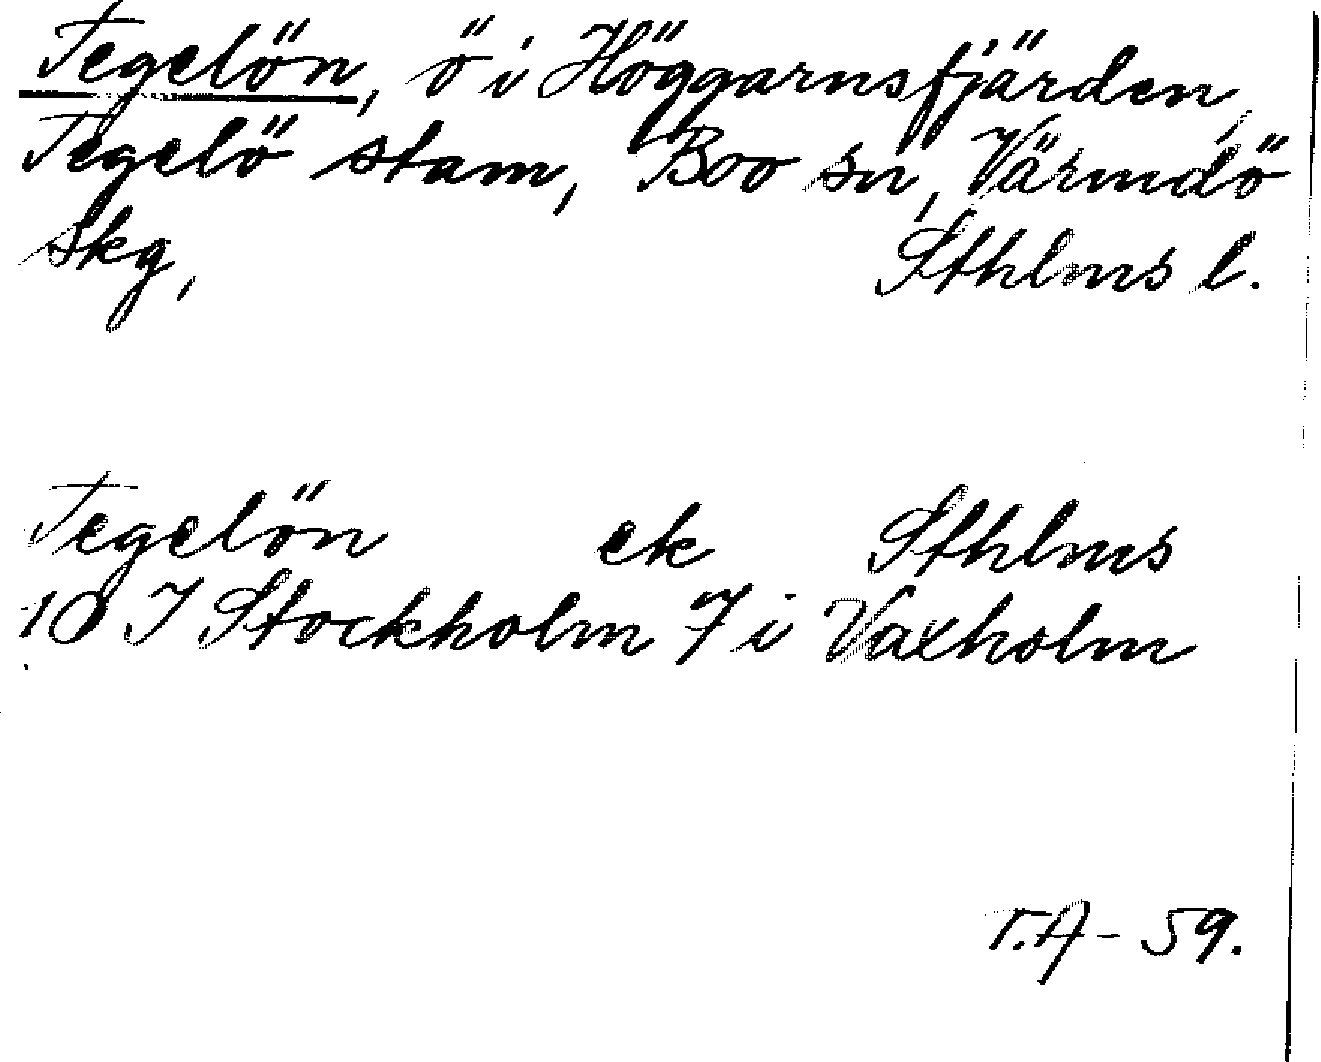 Tegelön, ö i Höggarnsfjärden,
Tegelö stam, Boo sn, Värmdö
skg, Sthlms l.
Tegelön ek Sthlms
10 I Stockholm 7 i Vaxholm
T.A - 59.